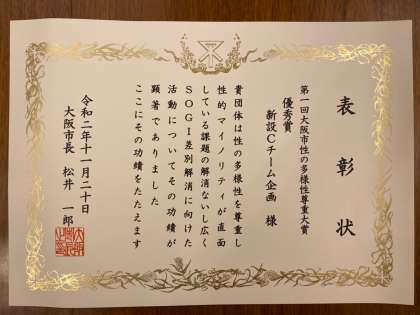 表彰状
第一回大阪市性の多様性尊重大賞
優秀賞
新設Cチーム企画 様
貴団体は性の多様性を尊重し
性的マイノリティが直面
している課題の解消ないし広く
SOGI差別解消に向けた
活動についてその功績が
顕著でありました
ここにその功績をたたえます
令和二年十一月二十日
大阪市長 松井 一郎